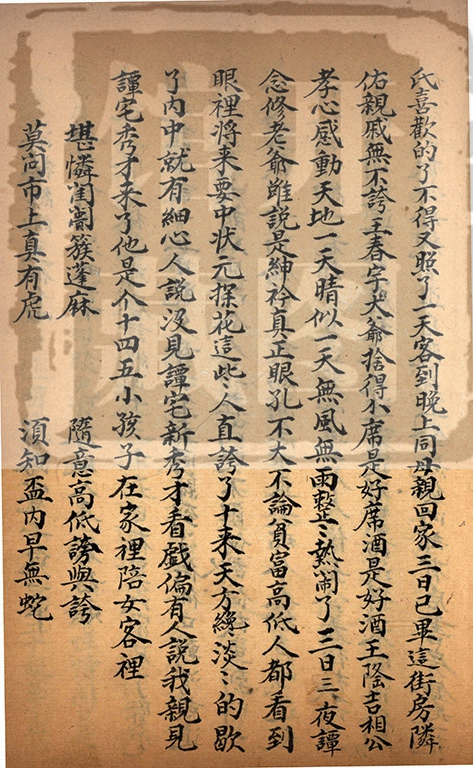 氏喜歡的了不得又照了一天客到晚上同母親回家三日已畢這街房隣
佑親戚無不誇王春宇大爺捨得席是好席酒是好酒王隆吉相公
孝心感動天地一天晴似一天無風無雨整〻熱鬧了三日三夜譚
念修老爺雖說是紳衿真正眼孔不大不論貧富高低人都看到
眼裡將來要中狀元探花這些人直誇了十来天方纔淡〻的歇
了內中就有細心人說沒見譚宅新秀才看戲偏有人說我親見
譚宅秀才来了他是个十四五小孩子在家裡陪女客裡
堪憐閨閣簇蓬麻 隨意高低謗與誇
莫问市上真有虎 須知盃內早無蛇